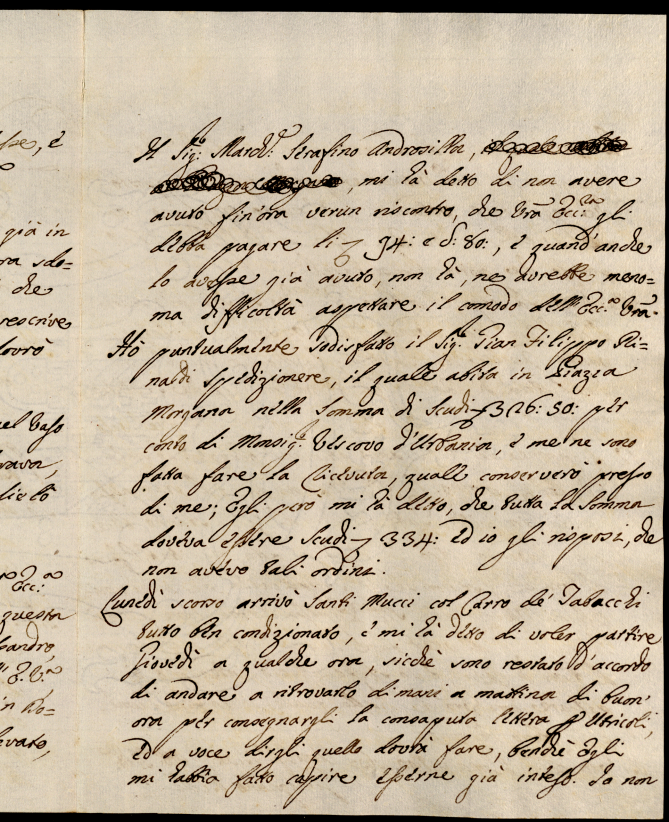 Il Sig: March: Serafino Androsilla,
, mi hà detto di non avere
avuto fin'ora verun riscontro, che Vrã Ecc:za gli
debba pagare li 94: e d: 80:, e quand'anche
lo avesse già avuto, non hà, ne avrebbe meno=
ma difficoltà aspettare il comodo dell'Ecc:a Vrã.
Hò puntualmente sodisfatto il Sig: Gian Filippo Ri=
naldi Spedizionere, il quale abita in Piazza
Morgana nella somma di Scudi 326: 50: per
conto di Monsig: Vescovo d'Urbania, e me ne sono
fatta fare la Ricevuta, quale conserverò presso
di me; Egli però mi hà detto, che tutta la somma
doveva essere Scudi 334: Ed io gli risposi, che
non avevo tali ordini.
Lunedì scorso arrivò Santi Mucci col Carro de' Tabacchi
tutto ben condizionato, e mi hà detto di voler partire
Giovedì a qualche ora, sicchè sono restato d'accordo
di andare a ritrovarlo dimani a mattina di buon'
ora per consegnargli la consaputa lettera p Utricoli,
Ed a voce dirgli quello dovrà fare, benchè Egli
mi habbia fatto capire esserne già inteso. Ia non
già in
che
rescrive
dovrò
Ecc:
questa